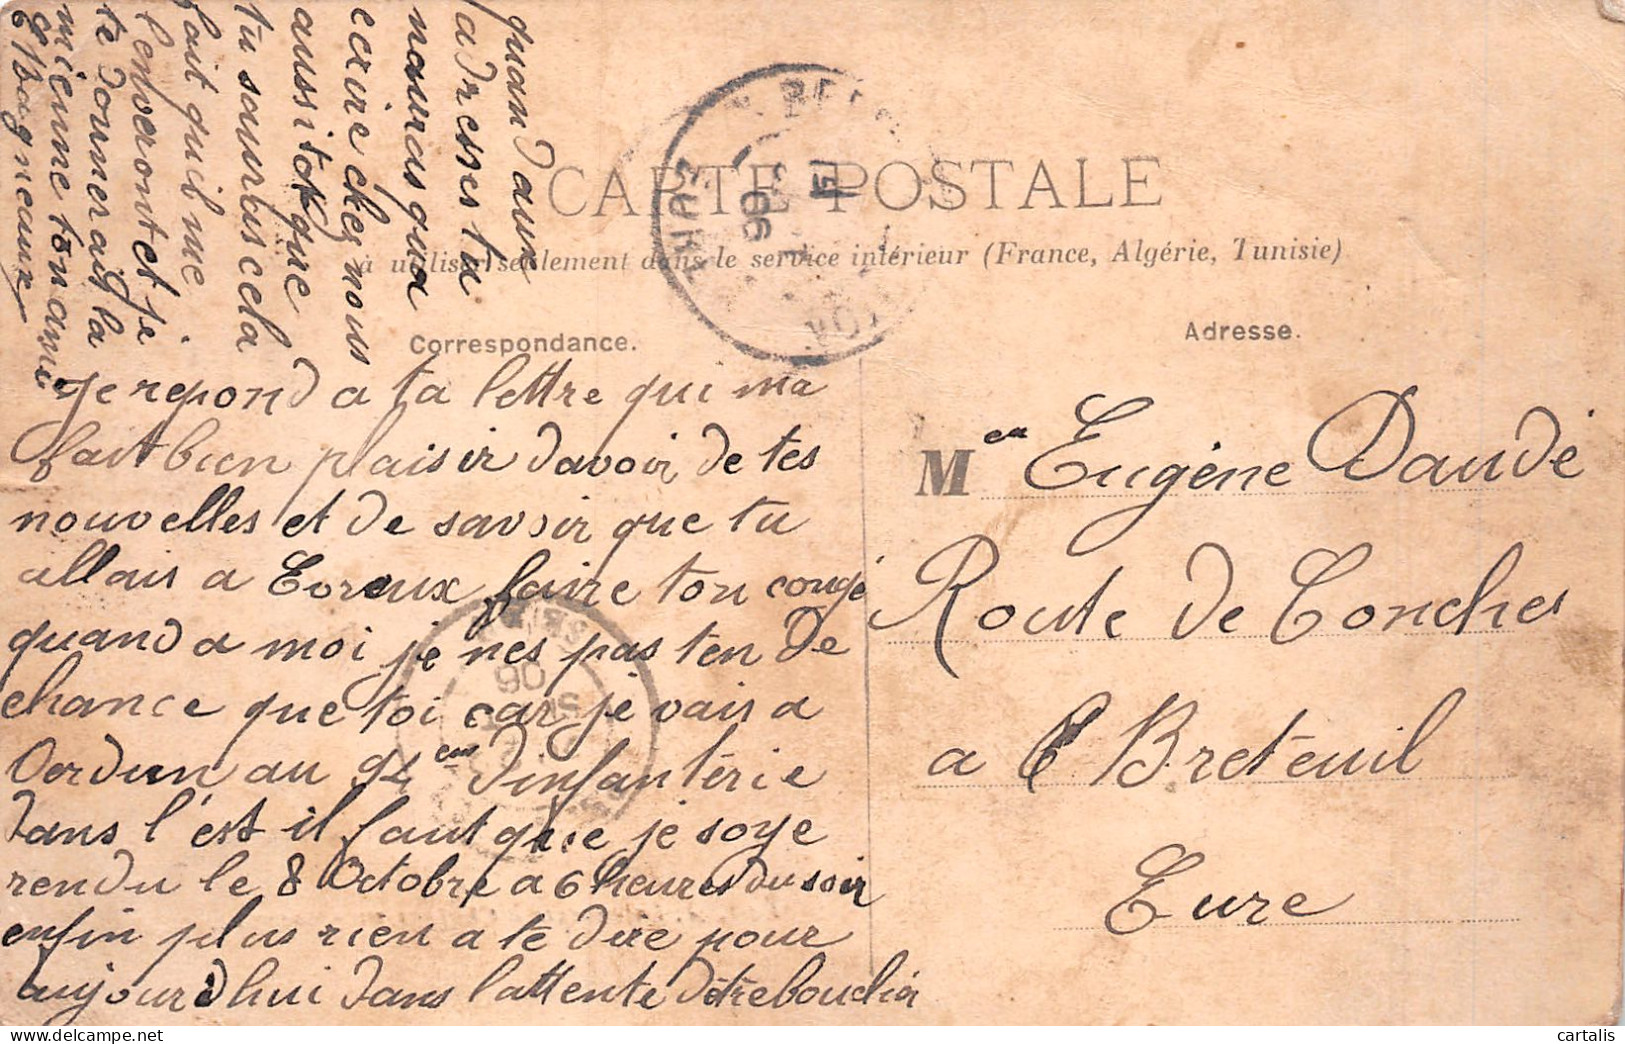 CARTE POSTALE
à utiliser seulement dans le service intérieur (France, Algérie, Tunisie)
Correspondance.
Adresse.
Je repond a ta lettre qui ma
fait bien plaisir davoir de tes
nouvelles et de savoir que tu
allais a Evreux faire ton congé
quand a moi je nes pas ten de
chance que toi car je vais a
Verdun au 94 em dinfanterie
dans l'est il faut que je soye
rendu le 8 Octobre a 6 heures du soir
enfin plus rien a te dire pour
aujourdhui dans lattente dêtre
quand aux
adresses ta
naura qua
ecrire ches nous
aussitot que
tu sauras cela
fait quil me
lenveront et je
te donnerais la
mienne ton ami
E Bagneaux
M en Eugéne Daudé
Route de Conches
a Breteuil
Eure
EURE
06
06
cartalis